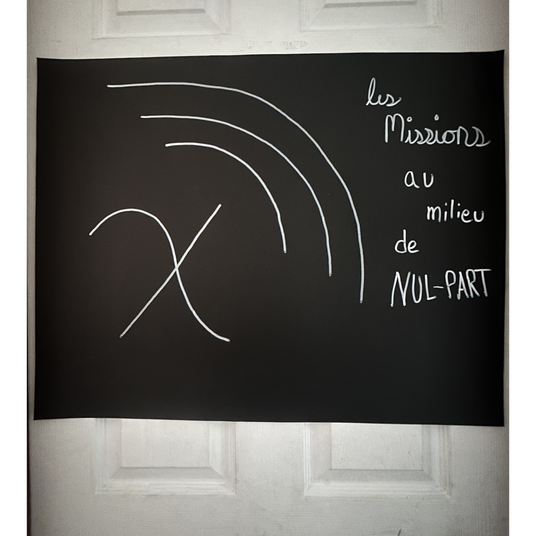 les
Missions
au
milieu
de
NUL-PART
χ